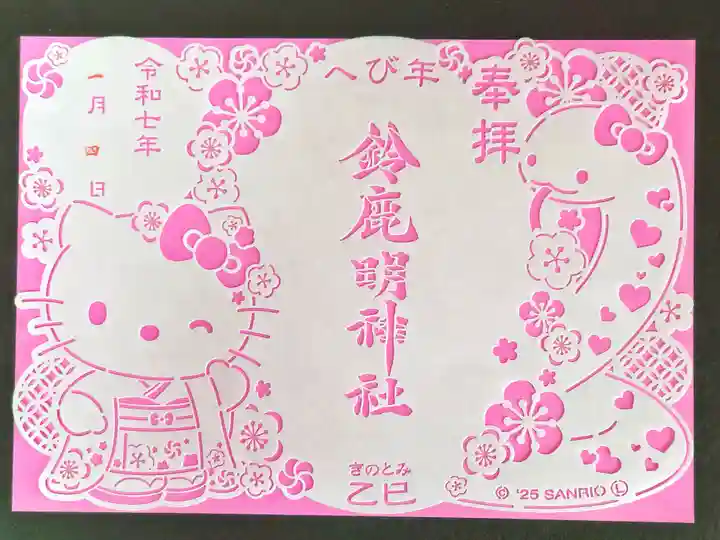 奉拝
へび年
鈴鹿明神社
きのとみ
乙巳
令和七年
一月四日
© '25 SANRIO Ⓛ